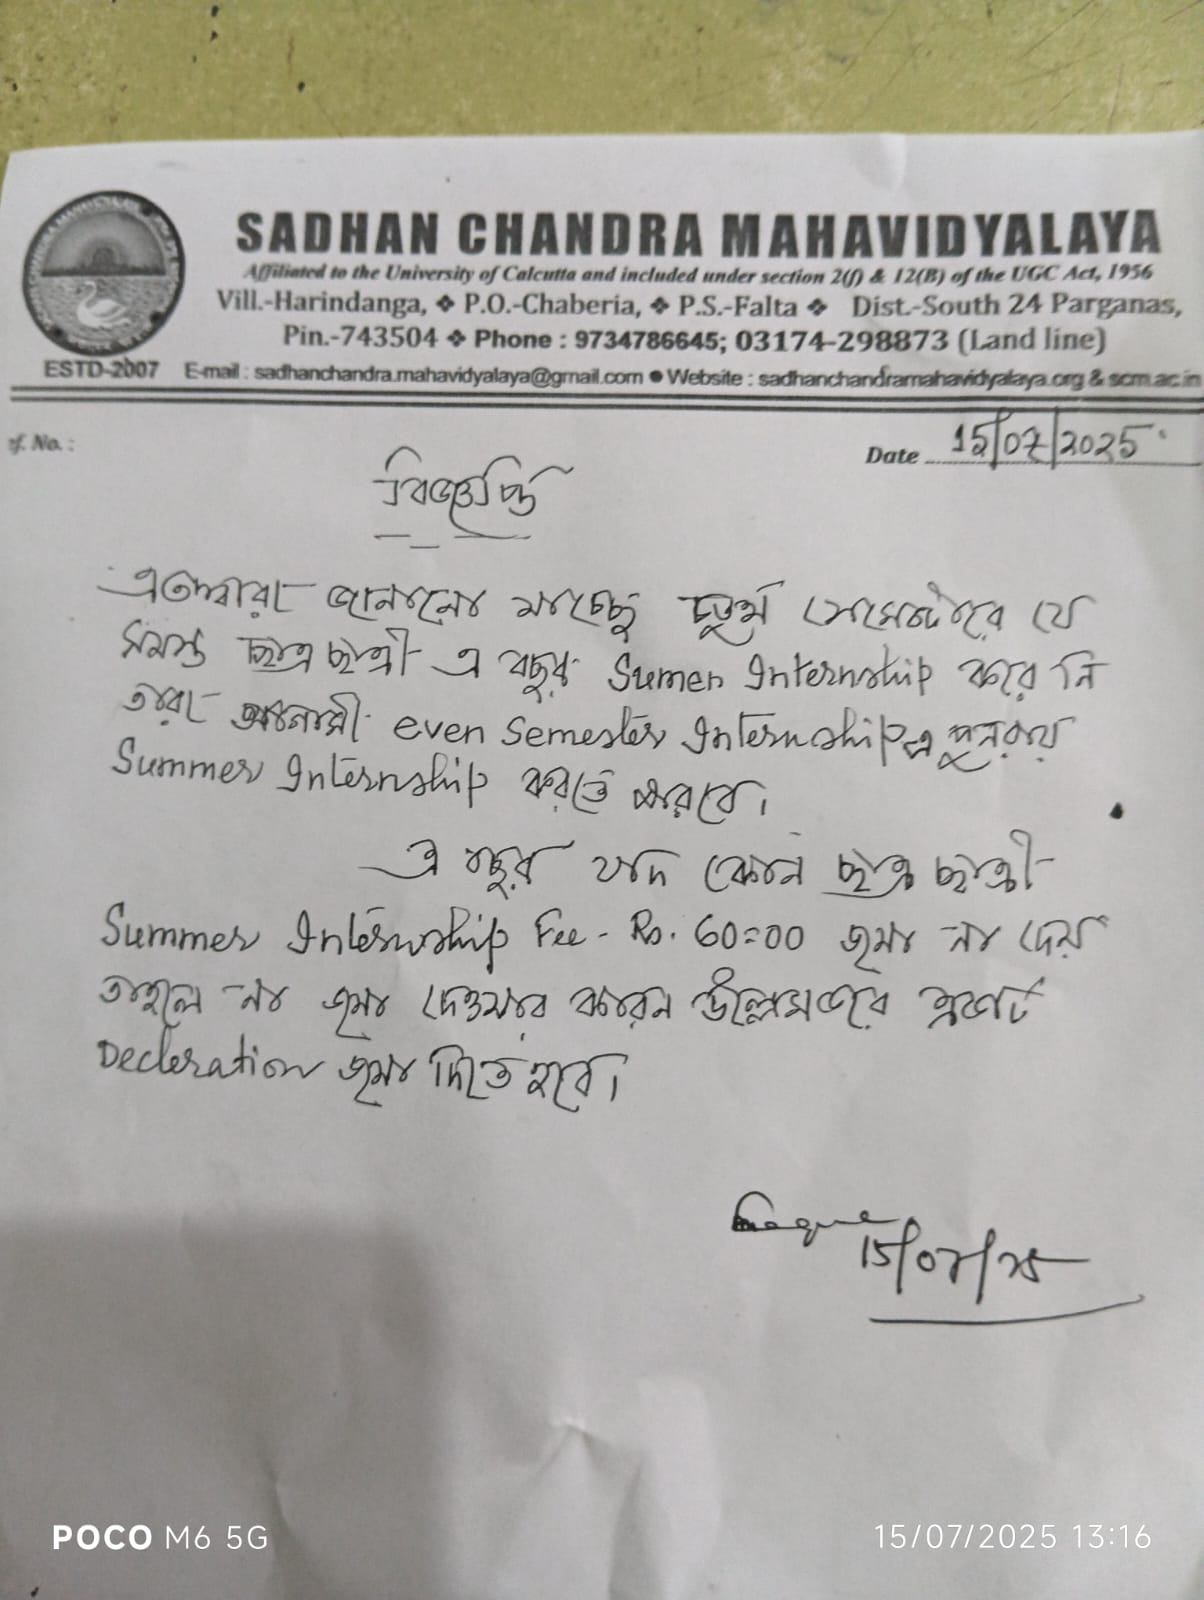 SADHAN CHANDRA MAHAVIDYALAYA
Affiliated to the University of Calcutta and included under section 2(f) & 12(B) of the UGC Act, 1956
Vill.-Harindanga, ❖ P.O.-Chaberia, ❖ P.S.-Falta ❖ Dist.-South 24 Parganas,
Pin.-743504 ❖ Phone : 9734786645; 03174-298873 (Land line)
ESTD-2007 E-mail : sadhanchandra.mahavidyalaya@gmail.com ● Website : sadhanchandramahavidyalaya.org & scm.ac.in
f. No. :
Date 15/07/2025
বিজ্ঞপ্তি
এতদ্বারা জানানো যাচ্ছে চতুর্থ সেমেস্টারে যে
সমস্ত ছাত্র ছাত্রী এ বছর Sumer Internship করে নি
তারা আগামী even Semester Internship এ পুনরায়
Summer Internship করতে পারবে।
এ বছর যদি কোন ছাত্র ছাত্রী
Summer Internship Fee - Rs. 60=00 জমা না দেয়
তাহলে না জমা দেওয়ার কারন উল্লেখকরে একটি
Decleration জমা দিতে হবে।
15/07/25
POCO M6 5G
15/07/2025 13:16